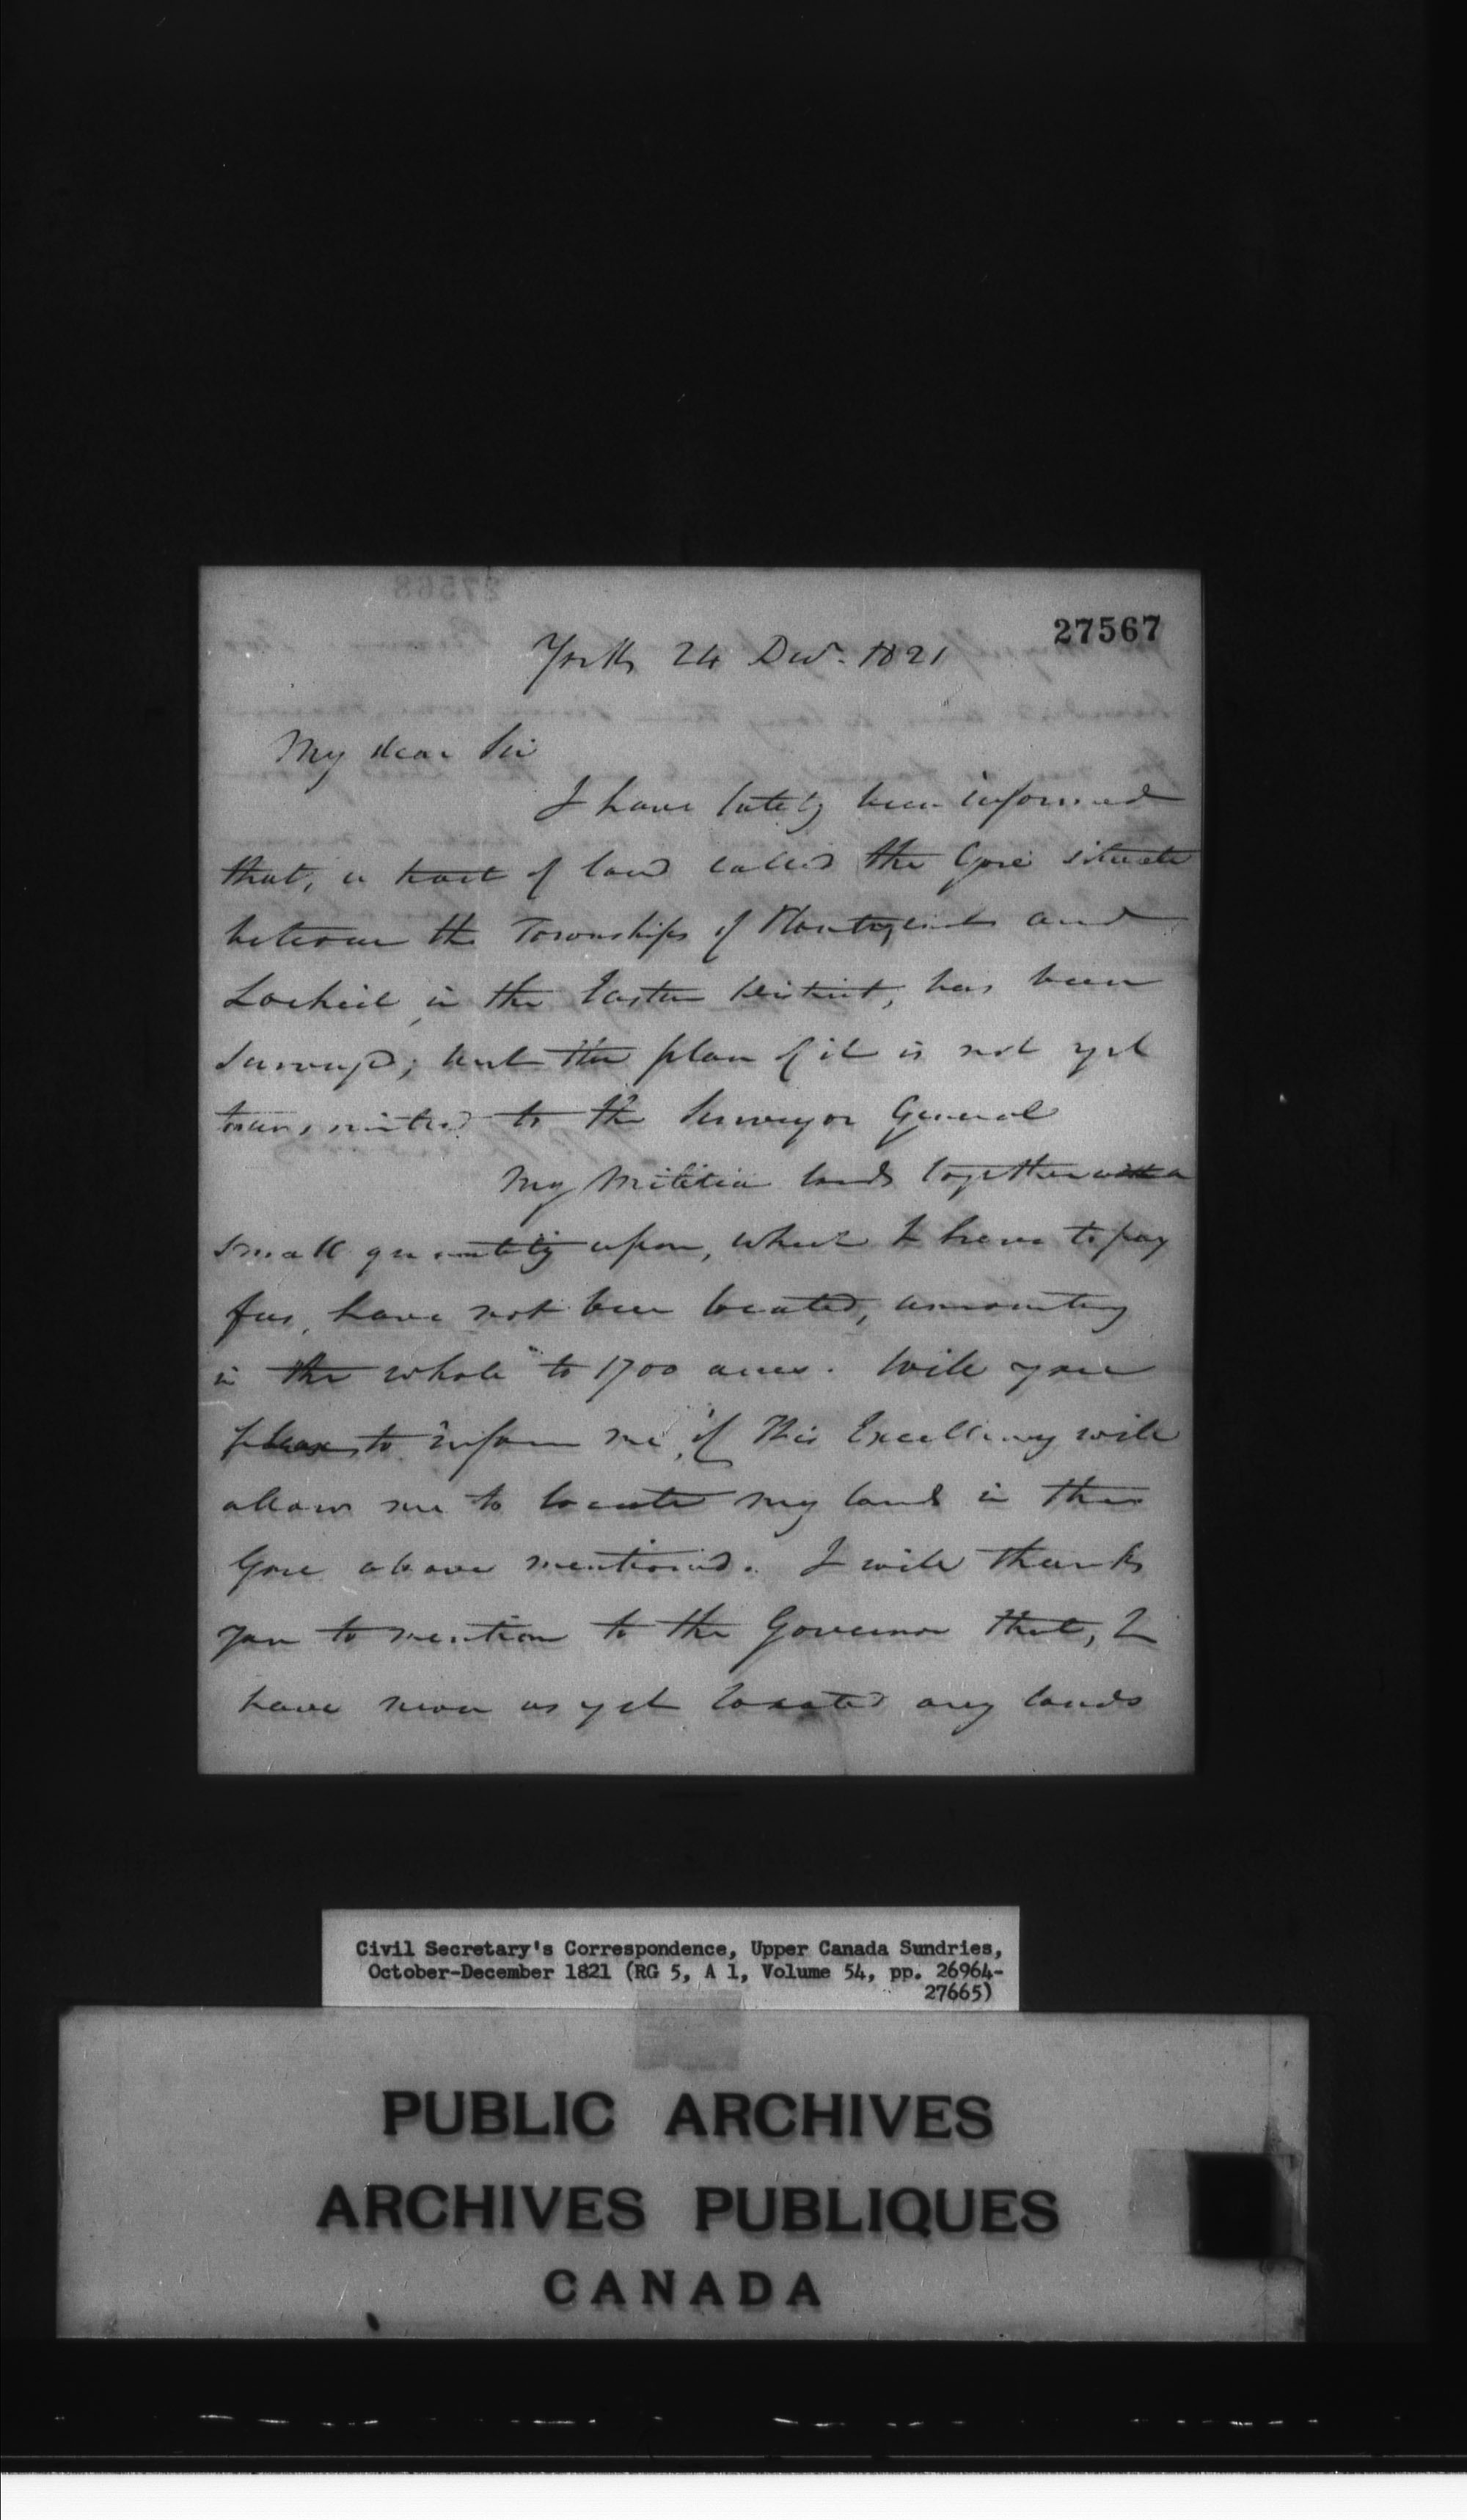 27567
York 24 Decr. 1821
My dear Sir
I have lately been informed
that, a tract of land called the Gore situate
between the Townships of Plantagenet and
Lochiel in the Eastern District, has been
Surveyed; but the plan of it is not yet
transmitted to the Surveyor General
My Militia lands together with a
small quantity upon, which I have to pay
fees, have not been located, amounting
in the whole to 1700 acres. Will you
please to inform me, if His Excellency will
allow me to locate my land in the
Gore above mentioned. I will thank
you to mention to the Governor that, I
have never as yet located any lands
Civil Secretary's Correspondence, Upper Canada Sundries,
October-December 1821 (RG 5, A 1, Volume 54, pp. 26964-
27665)
PUBLIC ARCHIVES
ARCHIVES PUBLIQUES
CANADA